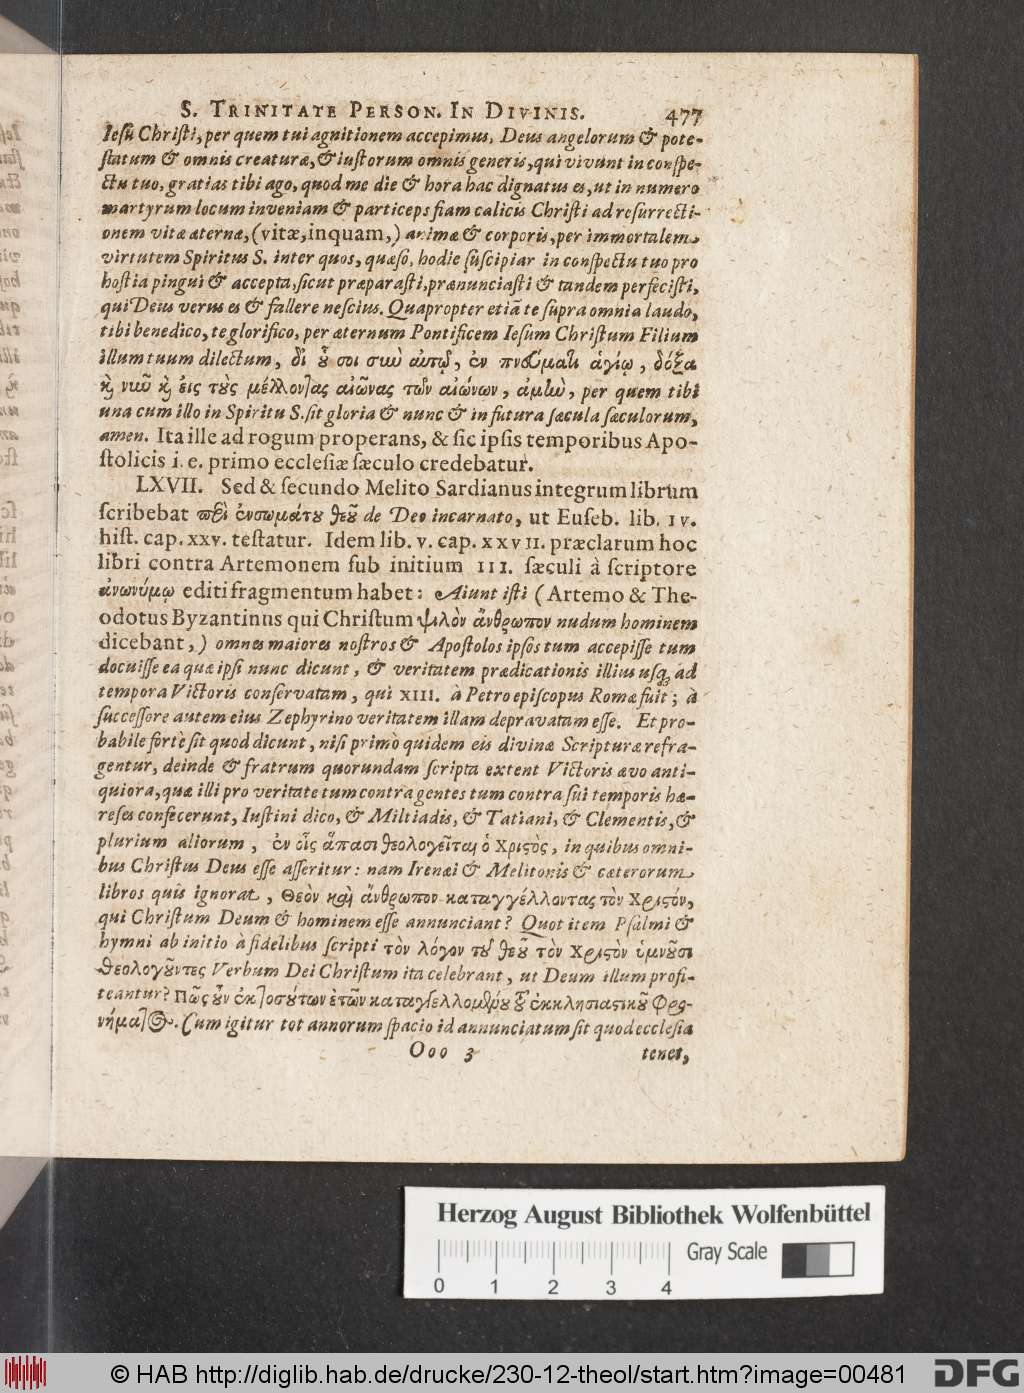 S. TRINITATE PERSON. IN DIVINIS. 477
Iesū Christi, per quem tui agnitionem accepimus, Deus angelorum & pote-
statum & omnis creaturæ, & iustorum omnis generis, qui vivunt in conspe-
ctu tuo, gratias tibi ago, quod me die & hora hac dignatus es, ut in numero
martyrum locum inveniam & particeps fiam calicis Christi ad resurrecti-
onem vitæ æternæ, (vitæ, inquam,) animæ & corporis, per immortalem
virtutem Spiritus S. inter quos, quæso, hodie suscipiar in conspectu tuo pro
hostia pingui & accepta, sicut præparasti, prænunciasti & tandem perfecisti,
qui Deus verus es & fallere nescius. Quapropter etiā te supra omnia laudo,
tibi benedico, te glorifico, per æternum Pontificem Iesum Christum Filium
illum tuum dilectum, δι' οὗ σοι σὺν αὐτῷ, ἐν πνεύματι ἁγίῳ, δόξα
καὶ νῦν καὶ εἰς τοὺς μέλλοντας αἰῶνας τῶν αἰώνων, ἀμήν, per quem tibi
una cum illo in Spiritu S. sit gloria & nunc & in futura sæcula sæculorum,
amen. Ita ille ad rogum properans, & sic ipsis temporibus Apo-
stolicis i. e. primo ecclesiæ sæculo credebatur.
LXVII. Sed & secundo Melito Sardianus integrum librum
scribebat περὶ ἐνσωμάτου θεοῦ de Deo incarnato, ut Euseb. lib. IV.
hist. cap. XXV. testatur. Idem lib. V. cap. XXVII. præclarum hoc
libri contra Artemonem sub initium III. sæculi à scriptore
ἀνωνύμῳ editi fragmentum habet: Aiunt isti (Artemo & The-
odotus Byzantinus qui Christum ψιλὸν ἄνθρωπον nudum hominem
dicebant,) omnes maiores nostros & Apostolos ipsos tum accepisse tum
docuisse ea quæ ipsi nunc dicunt, & veritatem prædicationis illius usq; ad
tempora Victoris conservatam, qui XIII. à Petro episcopus Romæ fuit; à
successore autem eius Zephyrino veritatem illam depravatam esse. Et pro-
babile forte sit quod dicunt, nisi primò quidem eis divinæ Scripturæ refra-
gentur, deinde & fratrum quorundam scripta extent Victoris ævo anti-
quiora, quæ illi pro veritate tum contra gentes tum contra sui temporis hæ-
reses confecerunt, Iustini dico, & Miltiadis, & Tatiani, & Clementis, &
plurium aliorum, ἐν οἷς ἅπασι θεολογεῖται ὁ Χριστὸς, in quibus omni-
bus Christus Deus esse asseritur: nam Irenæi & Melitonis & cæterorum
libros quis ignorat, Θεὸν καὶ ἄνθρωπον καταγγέλλοντας τὸν Χριστόν,
qui Christum Deum & hominem esse annunciant? Quot item Psalmi &
hymni ab initio à fidelibus scripti τὸν λόγον τοῦ θεοῦ τὸν Χριστὸν ὑμνοῦσι
θεολογοῦντες Verbum Dei Christum ita celebrant, ut Deum illum profi-
teantur? Πῶς οὖν ἐκ τοσούτων ἐτῶν καταγγελλομένου τοῦ ἐκκλησιαστικοῦ φρο-
νήματος. Cum igitur tot annorum spacio id annunciatum sit quod ecclesia
Ooo 3 tenet,
Herzog August Bibliothek Wolfenbüttel
Gray Scale
0 1 2 3 4
© HAB http://diglib.hab.de/drucke/230-12-theol/start.htm?image=00481
DFG